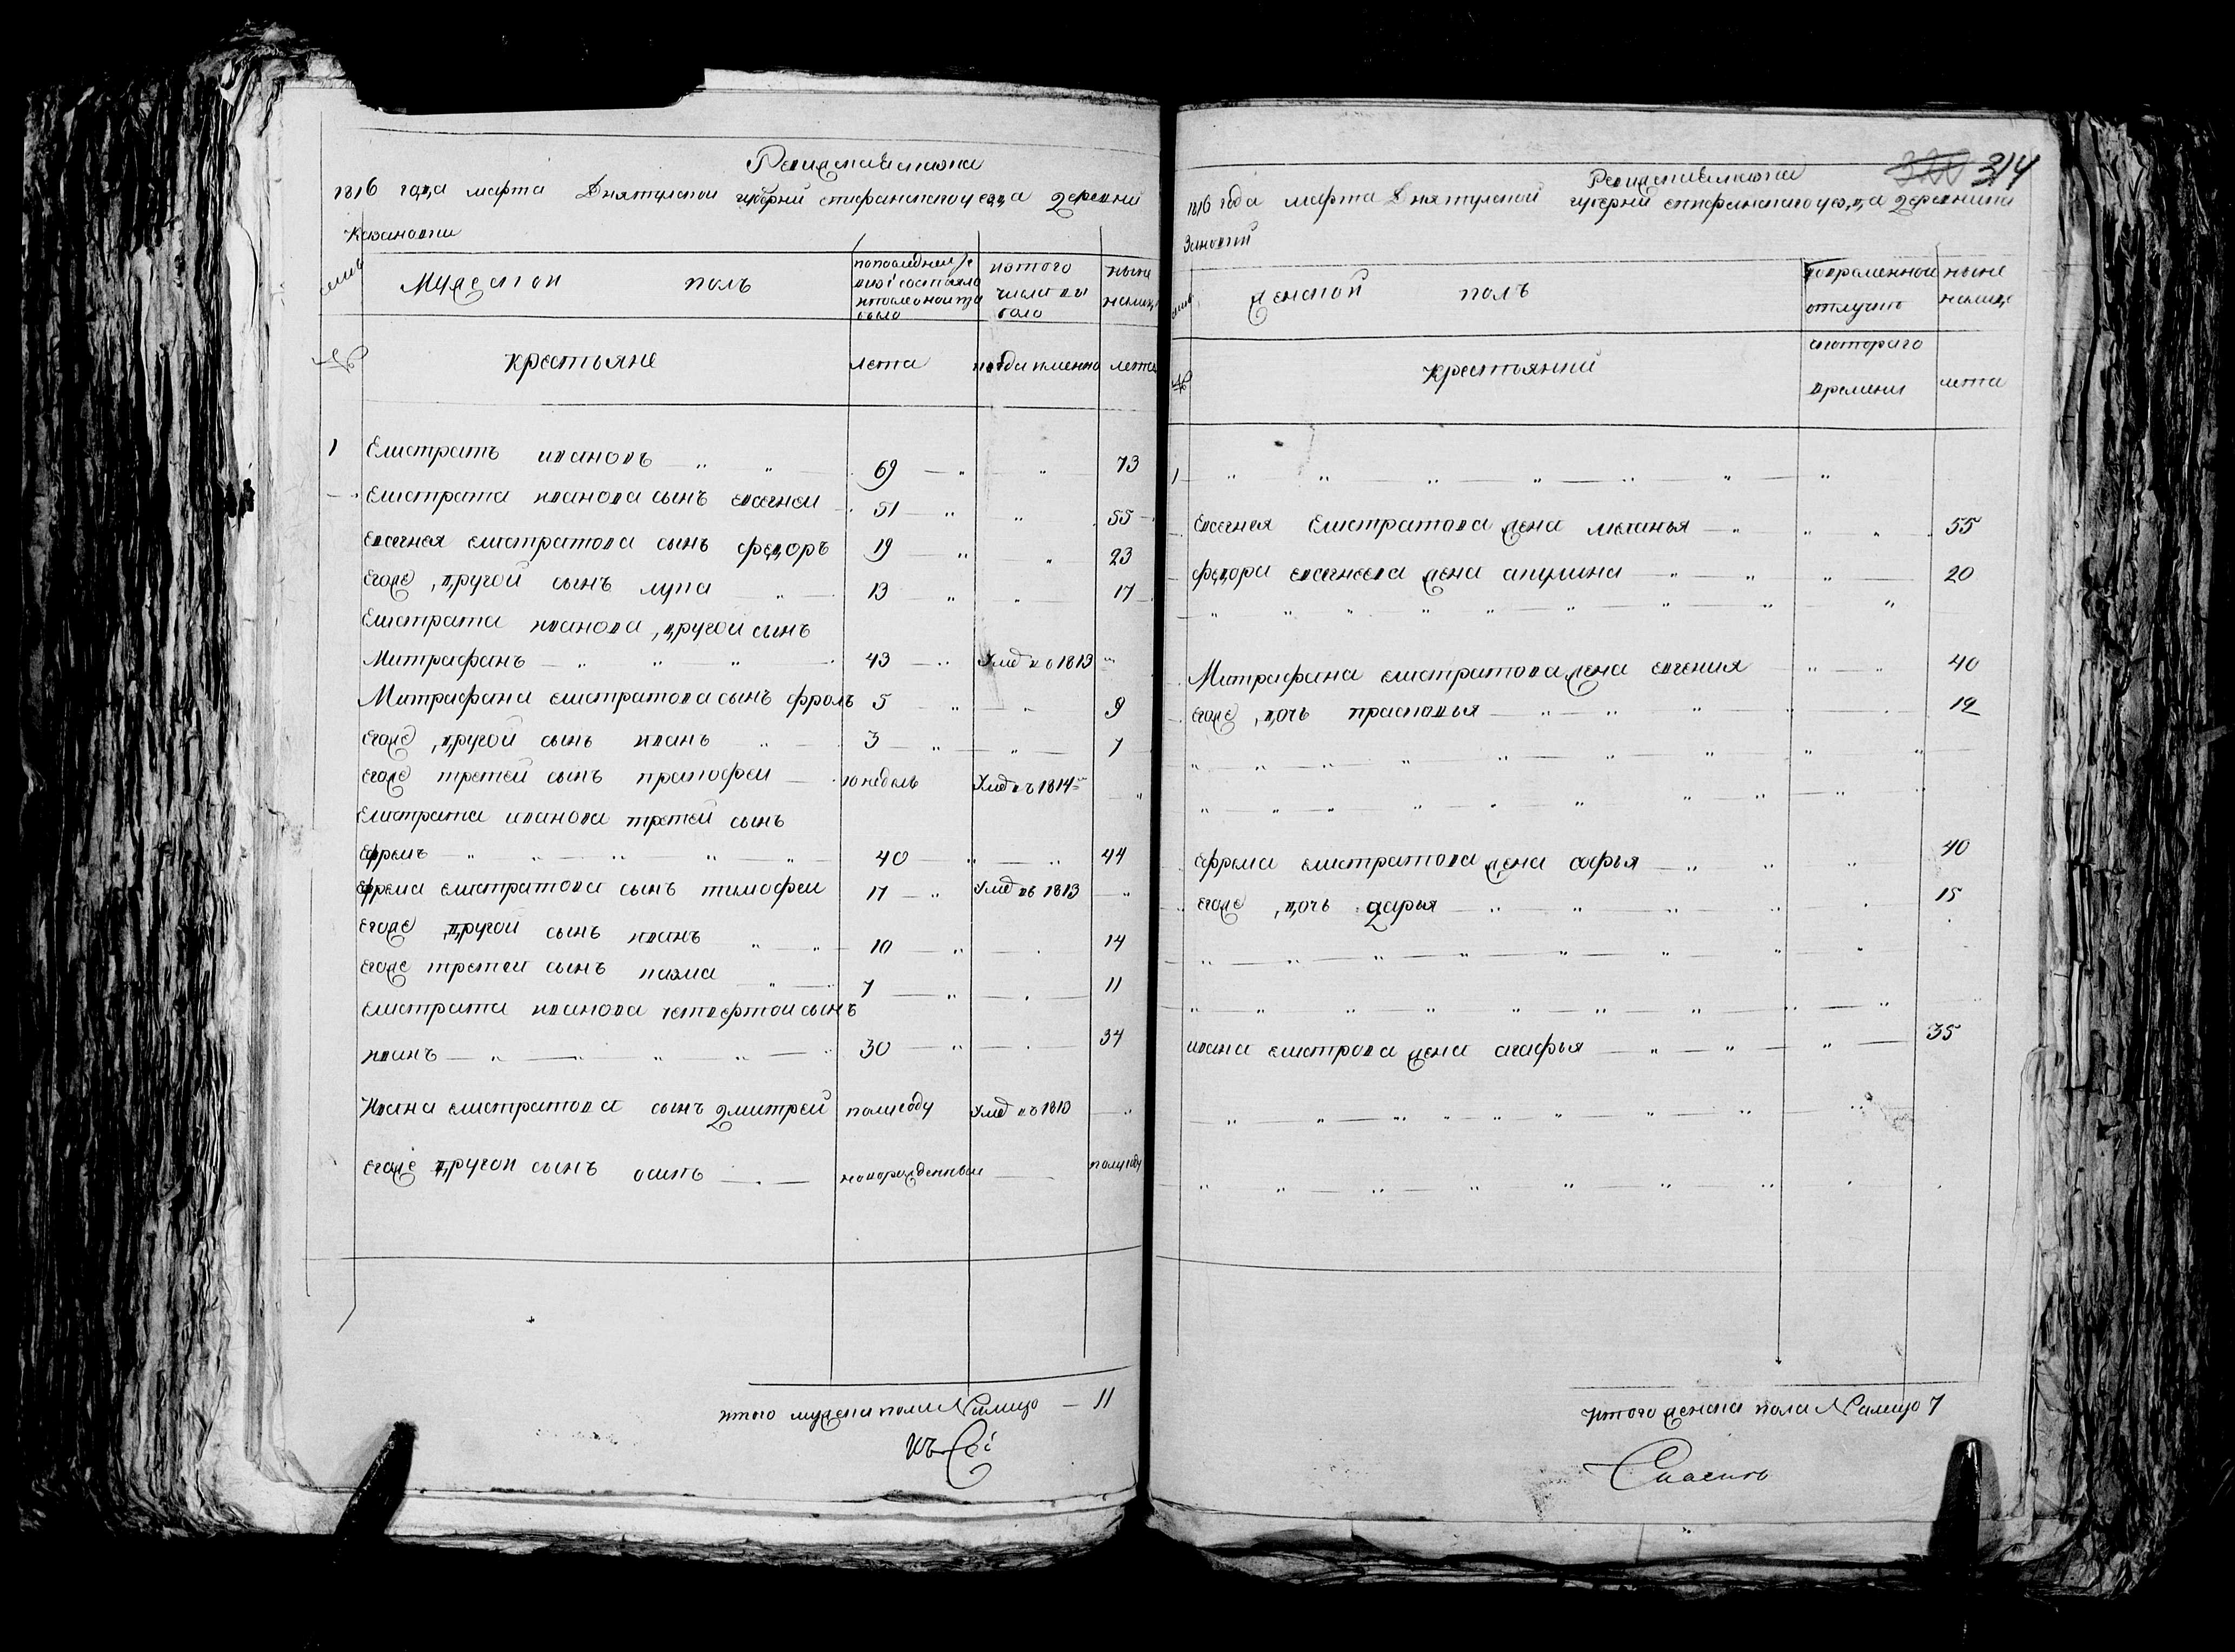 Ревизская скаска
1816 года марта дня тулской губерни епифанскаго уезда деревни
Казановки
Мужеской полъ
по последней ре
визі состояло
и после оной
было
из того
числа вы
было
ныне
налицо
№ крестьяне лета когда имянно лета
1 Елистратъ ивановъ 69 73
Елистрата иванова сынъ евсегней 51 55
Евсегнея елистратова сынъ федоръ 19 23
Егоже другой сынъ лупа 13 17
Елистрата иванова другой сынъ
Митрафанъ 43 Умер в 1813
Митрафана елистратова сынъ фролъ 5 9
Егоже другой сынъ иванъ 3 7
Егоже третей сынъ пракофей 10 недель Умер въ 1814
Елистрата иванова третей сынъ
Ефремъ 40 44
Ефрема елистратова сынъ тимофей 17 Умер въ 1813
Егоже другой сынъ иванъ 10 14
Егоже третей сынъ казма 7 11
Елистрата иванова четвертой сынъ
иванъ 30 34
Ивана елистратова сынъ дмитрей полугоду Умер въ 1813
Егоже другой сынъ осипъ новорожденный полугоду
итого мужеска пола Налицо 11
314
Ревизская скаска
1816 года марта дня тулской губерни епифанскаго уезда деревни ка
зановки
женской полъ
во временной
отлучке
ныне
налицо
№ крестьянки
с котораго
времени
лета
1
Евсегнея Елистратова жена меланья 55
федора евсегнеева жена акулина 20
Митрафана елистратова жена евгения 40
Егоже дочь прасковья 12
Ефрема елистратова жена софья 40
Егоже дочь дарья 15
ивана елистрова жена агафья 35
Итого женска пола Налицо 7